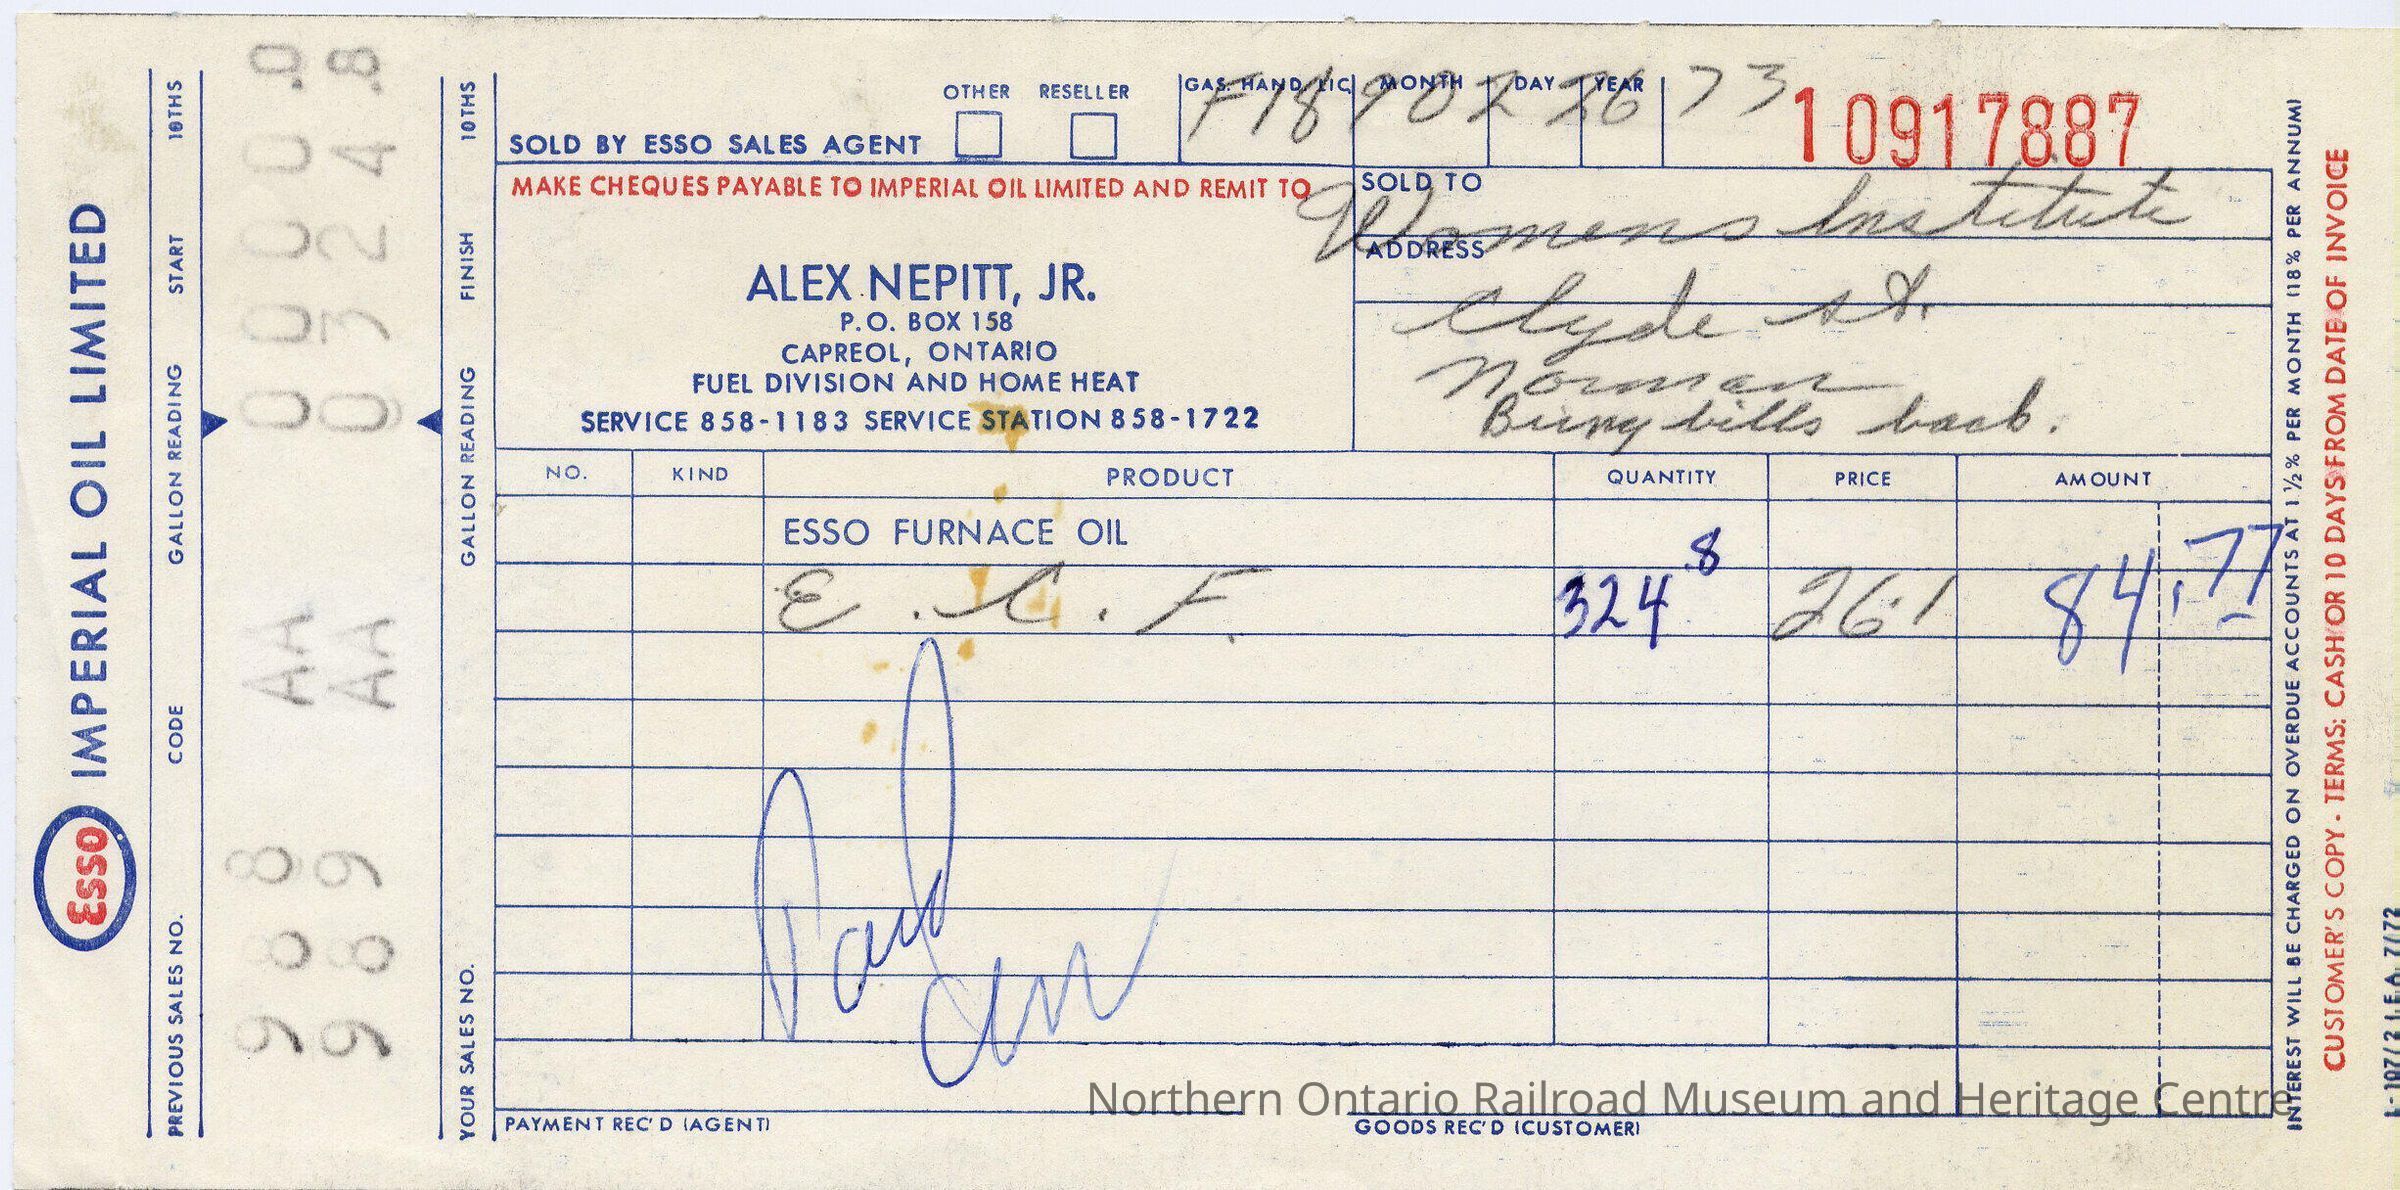 ESSO IMPERIAL OIL LIMITED
PREVIOUS SALES NO. CODE GALLON READING START 10THS
988 AA 0000.0
989 AA 0324.8
YOUR SALES NO. GALLON READING FINISH 10THS
OTHER RESELLER
SOLD BY ESSO SALES AGENT
GAS. HAND. LIC. MONTH DAY YEAR
F189 02 26 73
10917887
MAKE CHEQUES PAYABLE TO IMPERIAL OIL LIMITED AND REMIT TO
ALEX NEPITT, JR.
P.O. BOX 158
CAPREOL, ONTARIO
FUEL DIVISION AND HOME HEAT
SERVICE 858-1183 SERVICE STATION 858-1722
SOLD TO
Womens Institute
ADDRESS
Clyde St.
Norman
Bring bills back.
NO. KIND PRODUCT QUANTITY PRICE AMOUNT
ESSO FURNACE OIL
E. C. F. 324.8 26.1 84.77
Paid
PAYMENT REC'D (AGENT)
GOODS REC'D (CUSTOMER)
Northern Ontario Railroad Museum and Heritage Centre
INTEREST WILL BE CHARGED ON OVERDUE ACCOUNTS AT 1 ½% PER MONTH (18% PER ANNUM)
CUSTOMER'S COPY - TERMS: CASH OR 10 DAYS FROM DATE OF INVOICE